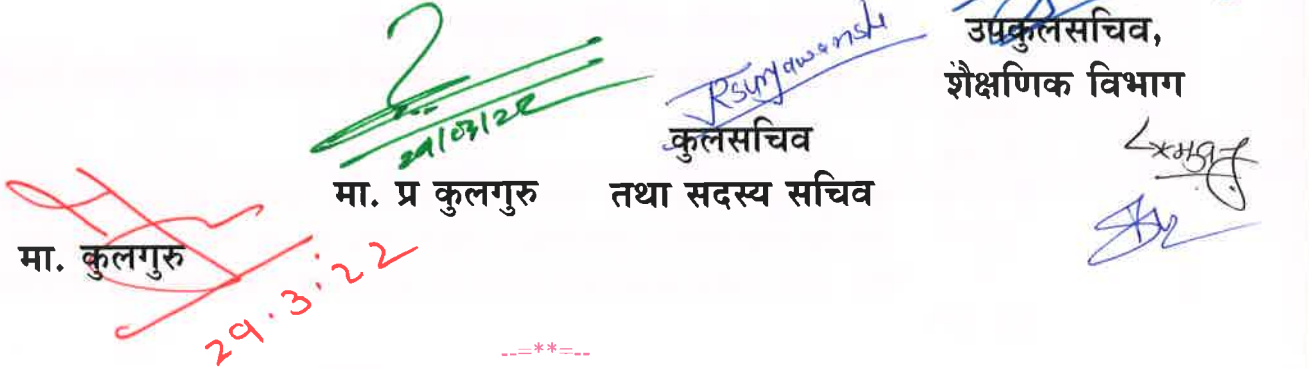 उपकुलसचिव,
शैक्षणिक विभाग
Rsuryawanshi
29/03/22
कुलसचिव
तथा सदस्य सचिव
मा. प्र कुलगुरु
मा. कुलगुरु
29.3.22
--=**=--